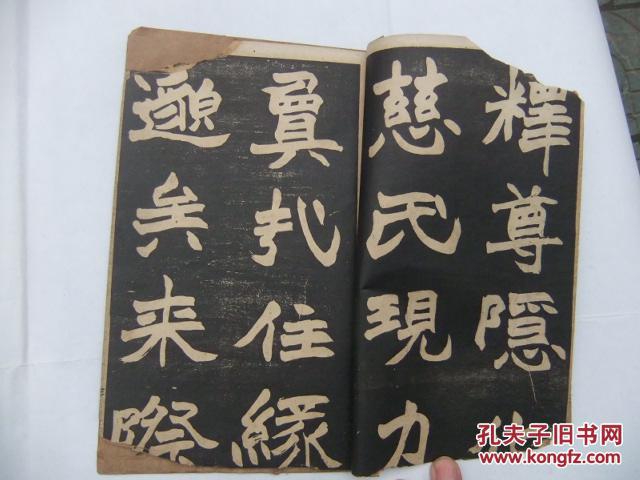 釋尊隱
慈氏現力
住緣
邈矣来際
孔夫子旧书网
www.kongfz.com